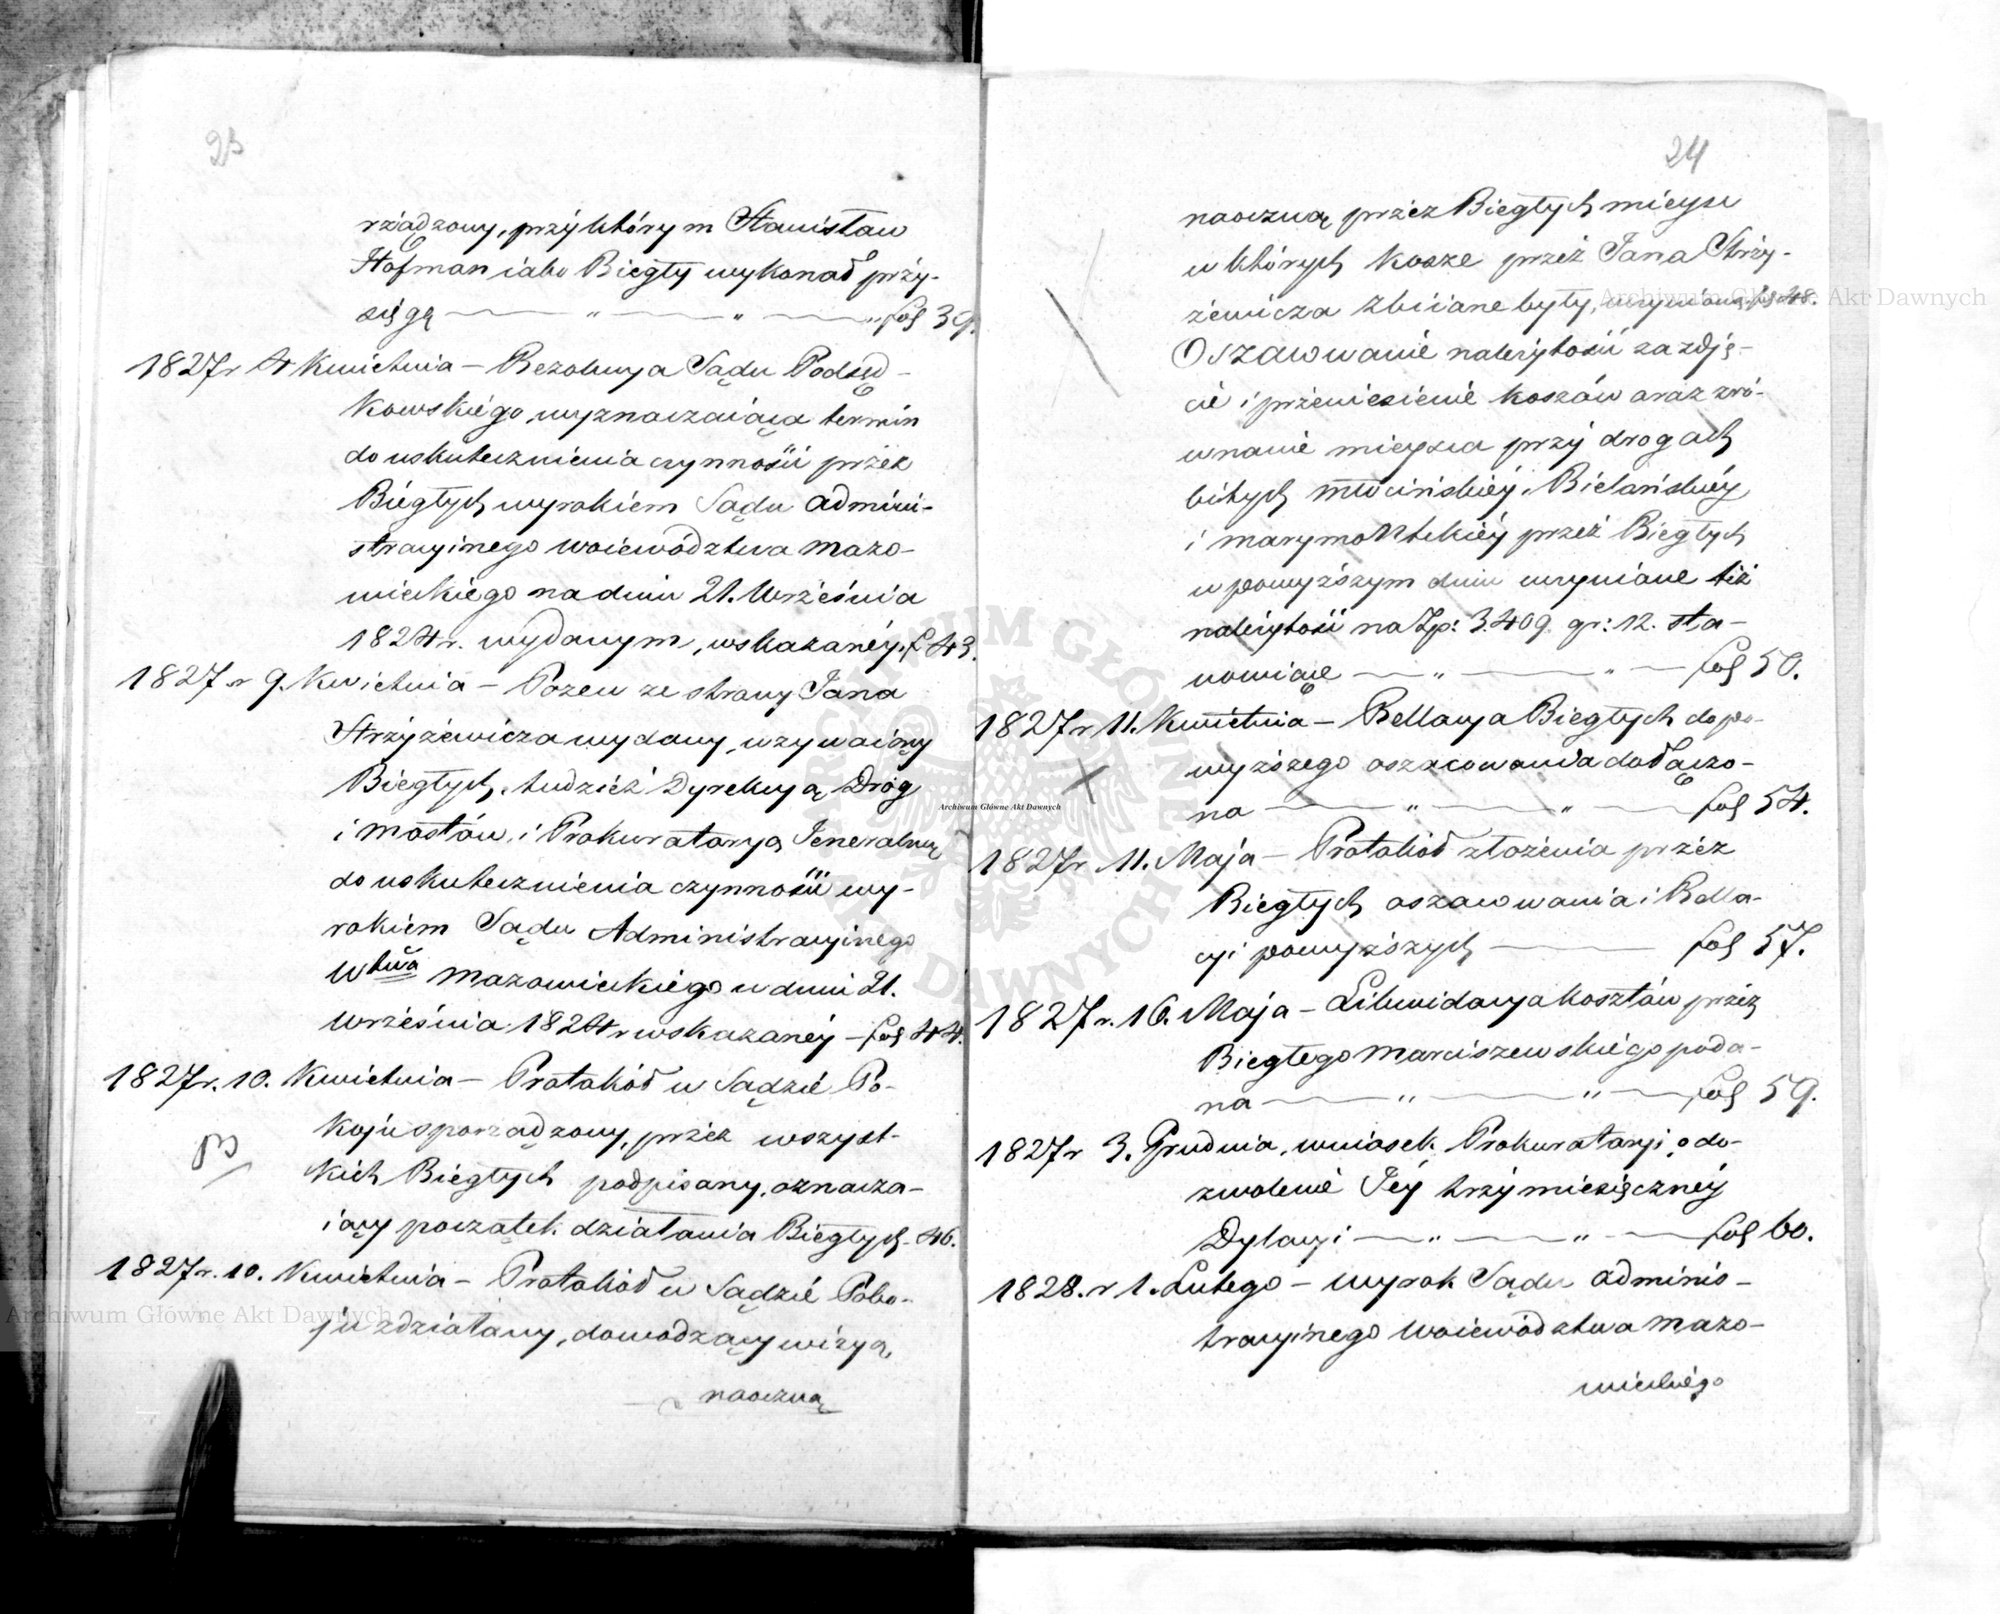 23
rządzony, przy którym Stanisław
Hofman iako Biegły wykonał przy-
sięgą — " — " — " fol 39.
1827 r 4 Kwietnia — Rezolucya Sądu Podsęd-
kowskiego, wyznaczaiąca termin
do uskutecznienia czynności przez
Biegłych wyrokiem Sądu Admini-
stracyinego Woiewództwa Mazo-
wieckiego na dniu 21. Września
1824 r. wydanym, wskazaney. f 43.
1827 r 9. Kwietnia — Pozew ze strony Jana
Strzyżewicza wydany, wzywaiący
Biegłych, tudzież Dyrekcyą Dróg
i Mostów, i Prokuratoryą Jeneralną
do uskutecznienia czynności wy-
rokiem Sądu Administracyinego
Wtwa Mazowieckiego w dniu 21.
Września 1824 r wskazaney — fol 44.
1827 r. 10. Kwietnia — Protokół w Sądzie Po-
koju sporządzony, przez wszyst-
kich Biegłych podpisany, oznacza-
iący początek działania Biegłych. 46.
1827 r. 10. Kwietnia — Protokół w Sądzie Poko-
ju zdziałany, dowodzący wizyą,
naoczną
24
naoczną przez Biegłych mieysc
w których kosze przez Jana Strzy-
żewicza zbiiane były, uczynioną fol 48.
Oszacowanie należytości za zdję-
cie i przeniesienie koszów oraz zró-
wnanie mieysca przy drogach
bitych Młocińskiéy, Bielańskiéy
i Marymontskiéy przez Biegłych
w powyższym dniu uczynione też
należytość na Zp: 3.409 gr: 12. sta-
nowiące — " — " — fol 50.
1827 r 11. Kwietnia — Rellacya Biegłych do po-
wyższego oszacowania dołączo-
na — " — " — fol 54.
1827 r 11. Maja — Protokół złożenia przez
Biegłych oszacowania i Rella-
cyi powyższych — fol 57.
1827 r. 16. Maja — Likwidacya kosztów przez
Biegłego Marciszewskiego poda-
na — " — " — fol 59.
1827 r 3. Grudnia, wniosek Prokuratoryi o do-
zwolenie Jéy trzymiesięcznéy
Dylacyi — " — " — fol 60.
1828. r 1. Lutego — Wyrok Sądu Adminis-
tracyinego Woiewództwa Mazo-
wieckiego
Archiwum Główne Akt Dawnych
Archiwum Główne Akt Dawnych
Archiwum Główne Akt Dawnych
ARCHIWUM GŁÓWNE AKT DAWNYCH